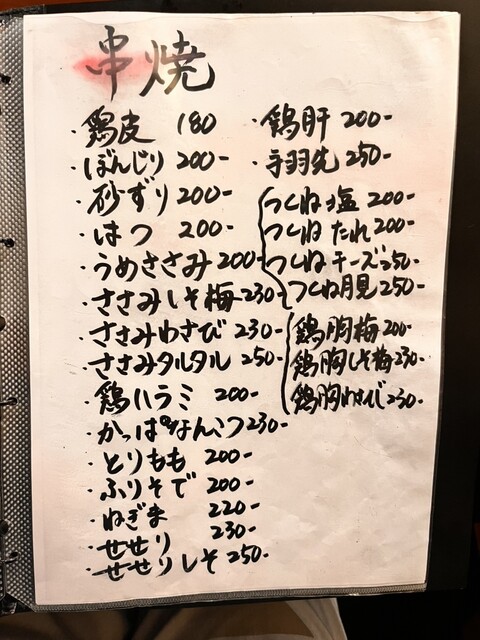 串焼
・鶏皮 180
・ぼんじり 200-
・砂ずり 200-
・はつ 200-
・うめささみ 200-
・ささみしそ梅 230-
・ささみわさび 230-
・ささみタルタル 250-
・鶏ハラミ 200-
・かっぱなんこつ 230-
・とりもも 200-
・ふりそで 200-
・ねぎま 220-
・せせり 230-
・せせりしそ 250-
・鶏肝 200-
・手羽先 250-
つくね塩 200-
つくねたれ 200-
つくねチーズ 250-
つくね月見 250-
鶏胸梅 200-
鶏胸しそ梅 230-
鶏胸わさび 230-